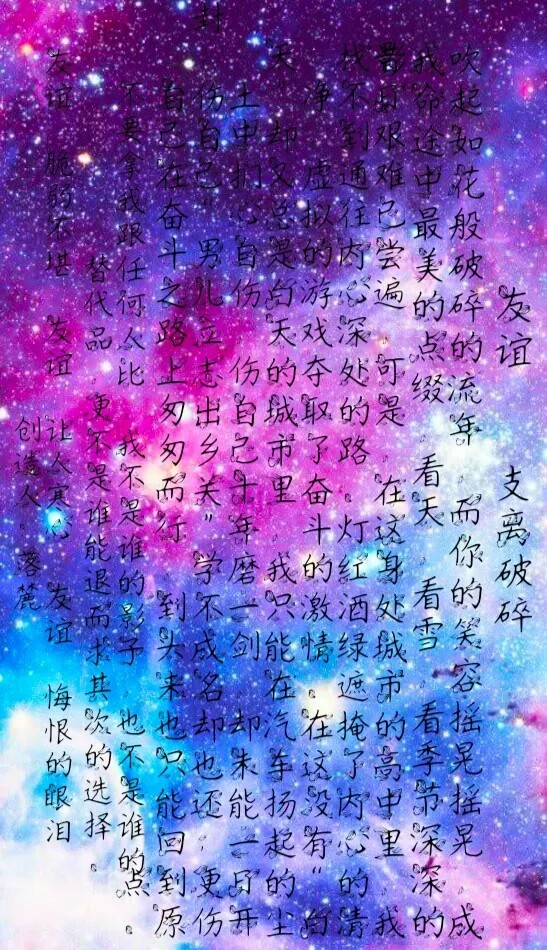 友谊 支离破碎
吹起如花般破碎的流年 而你的笑容摇晃摇晃 成
我命途中最美的点缀 看天 看雪 看季节深深的
艰难已尝遍 可是 在这身处城市的高中里 我
找不到通往内心深处的路 灯红酒绿遮掩了内心的清
净 虚拟的游戏夺取了奋斗的激情 在这没有“白
天 却又总是白天的城市里 我只能在汽车扬起的尘
土中扪心自伤 伤自己十年磨一剑 却未能一日开
封 伤自己“男儿立志出乡关” 学不成名却也还 更伤
自己在奋斗之路上匆匆而行 到头来也只能回到原
点.
不要拿我跟任何人比 我不是谁的影子 也不是谁的
替代品 更不是谁能退而求其次的选择.
友谊 脆弱不堪 友谊 让人寒心 友谊 悔恨的眼泪
创造人:落麓